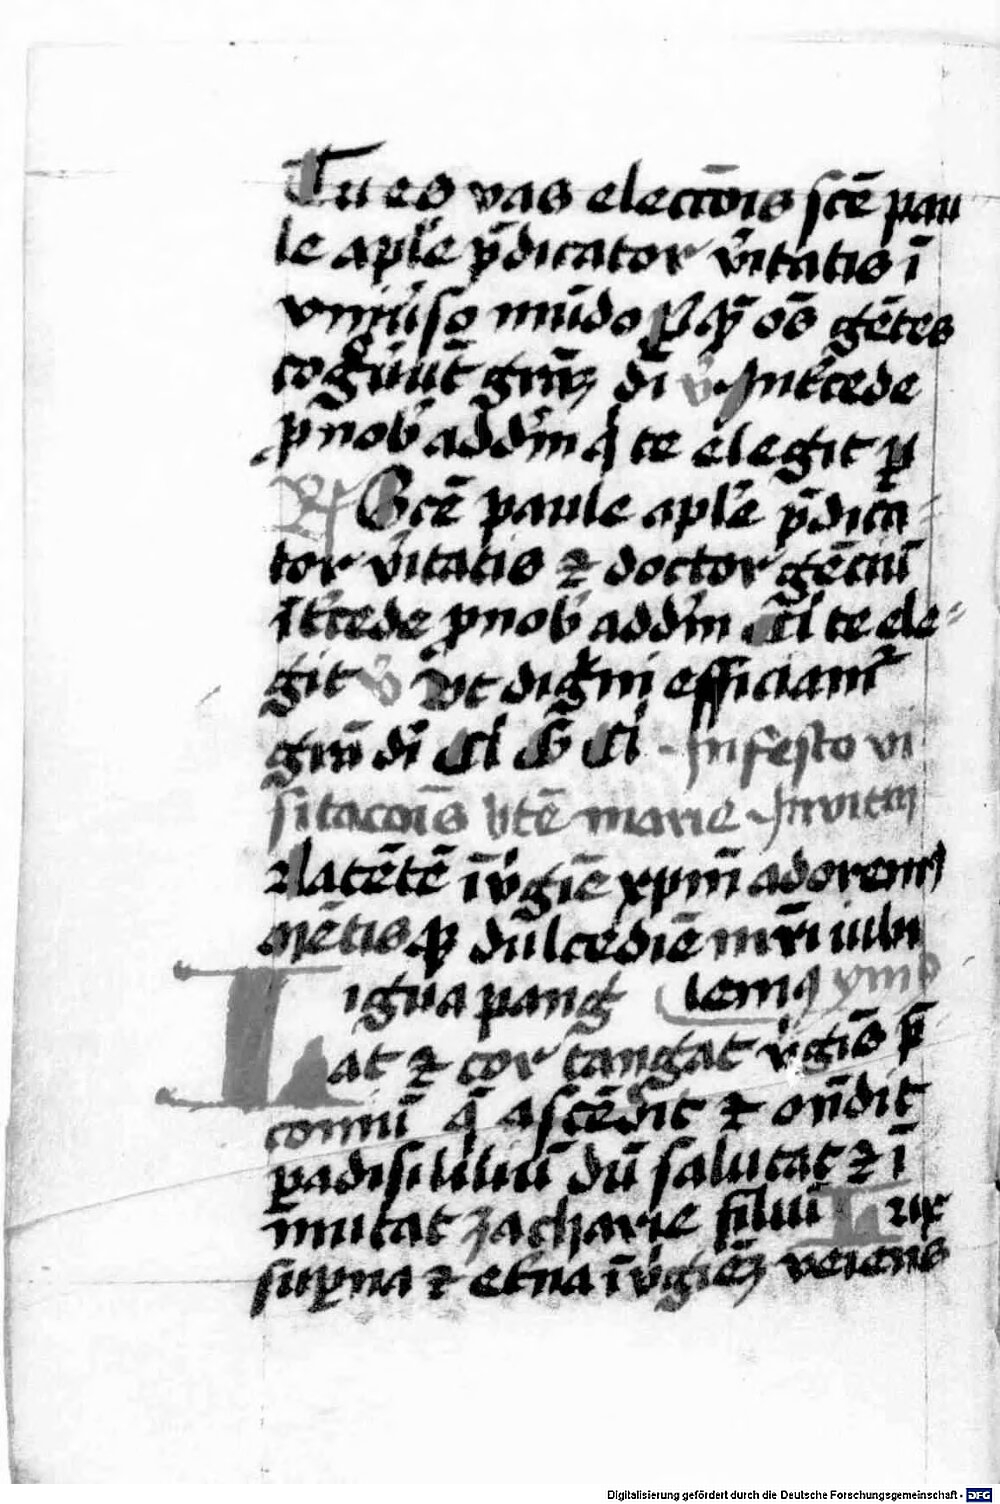 Tu es vas electōis scē pau
le aplē p̄dicator v̄itatis ī
vniu̅so mūdo ꝑ q̄ ōs gētes
cogn̄uūt grāꝫ dī v̄ Int̄cede
ꝓ nob̄ ad dn̄m q̄ te elegit ꝑ
R̄ Scē paule aplē p̄dica
tor v̄itatis ⁊ doctor gēciū
īt̄cede ꝓ nob̄ ad dn̄m q̄i te ele⸗
git v̄ Ut digni efficiam̄
grā dī Q̄i G̅ Q̄i In festo vi
sitacōis btē marie Invitat̄
Latētē ī v̄gīe xpm̄ adorem⁹
mētis ꝙ dulcediē mr̄i iubi
igua pang lem⁹ ymp̄
Lat ⁊ cor tangat v̄gīs p̄
coniū q̄ ascēdit ⁊ on̄dit
ꝑadisi liliū dū salutat ⁊ ī
mutat zacharie filiū Lux
suꝑna ⁊ et̄na ī v̄gīeꝫ veiens
Digitalisierung gefördert durch die Deutsche Forschungsgemeinschaft - DFG